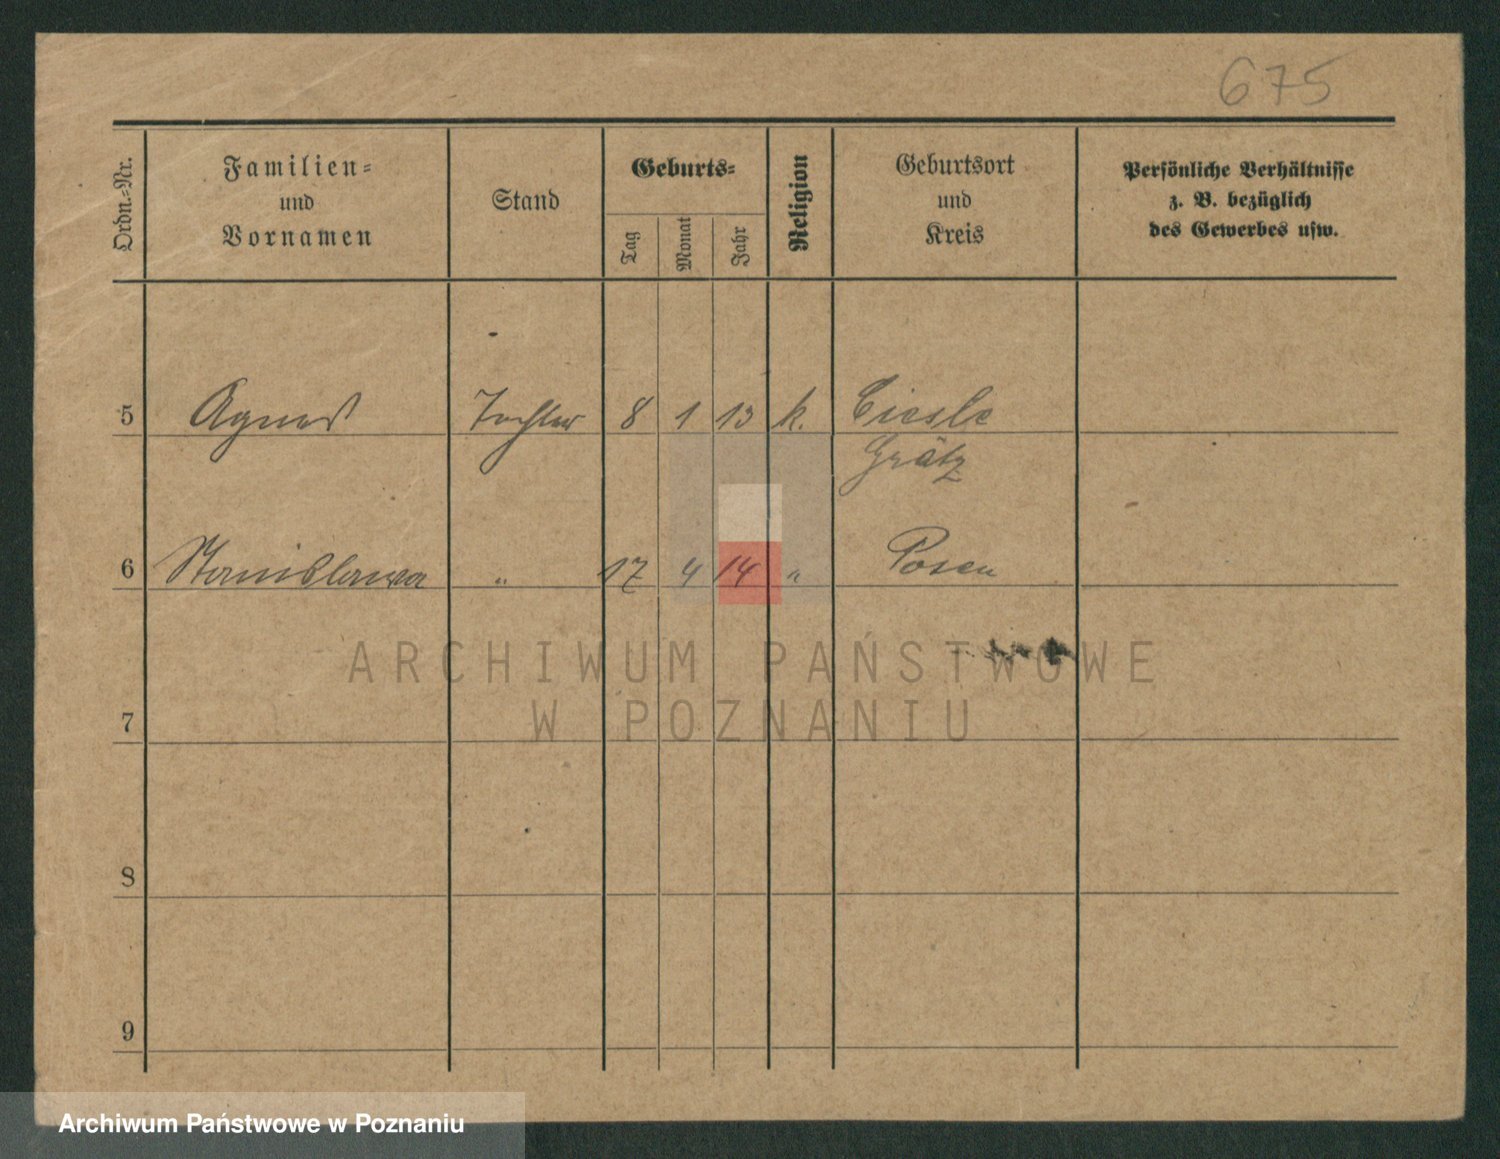 675
Ordn.-Nr.
Familien-
und
Vornamen
Stand
Geburts-
Tag
Monat
Jahr
Religion
Geburtsort
und
Kreis
Persönliche Verhältnisse
z. B. bezüglich
des Gewerbes usw.
5 Agnes Tochter 8 1 13 k. Ciesle
Grätz
6 Stanislawa " 17 4 14 " Posen
ARCHIWUM PAŃSTWOWE
W POZNANIU
7
8
9
Archiwum Państwowe w Poznaniu